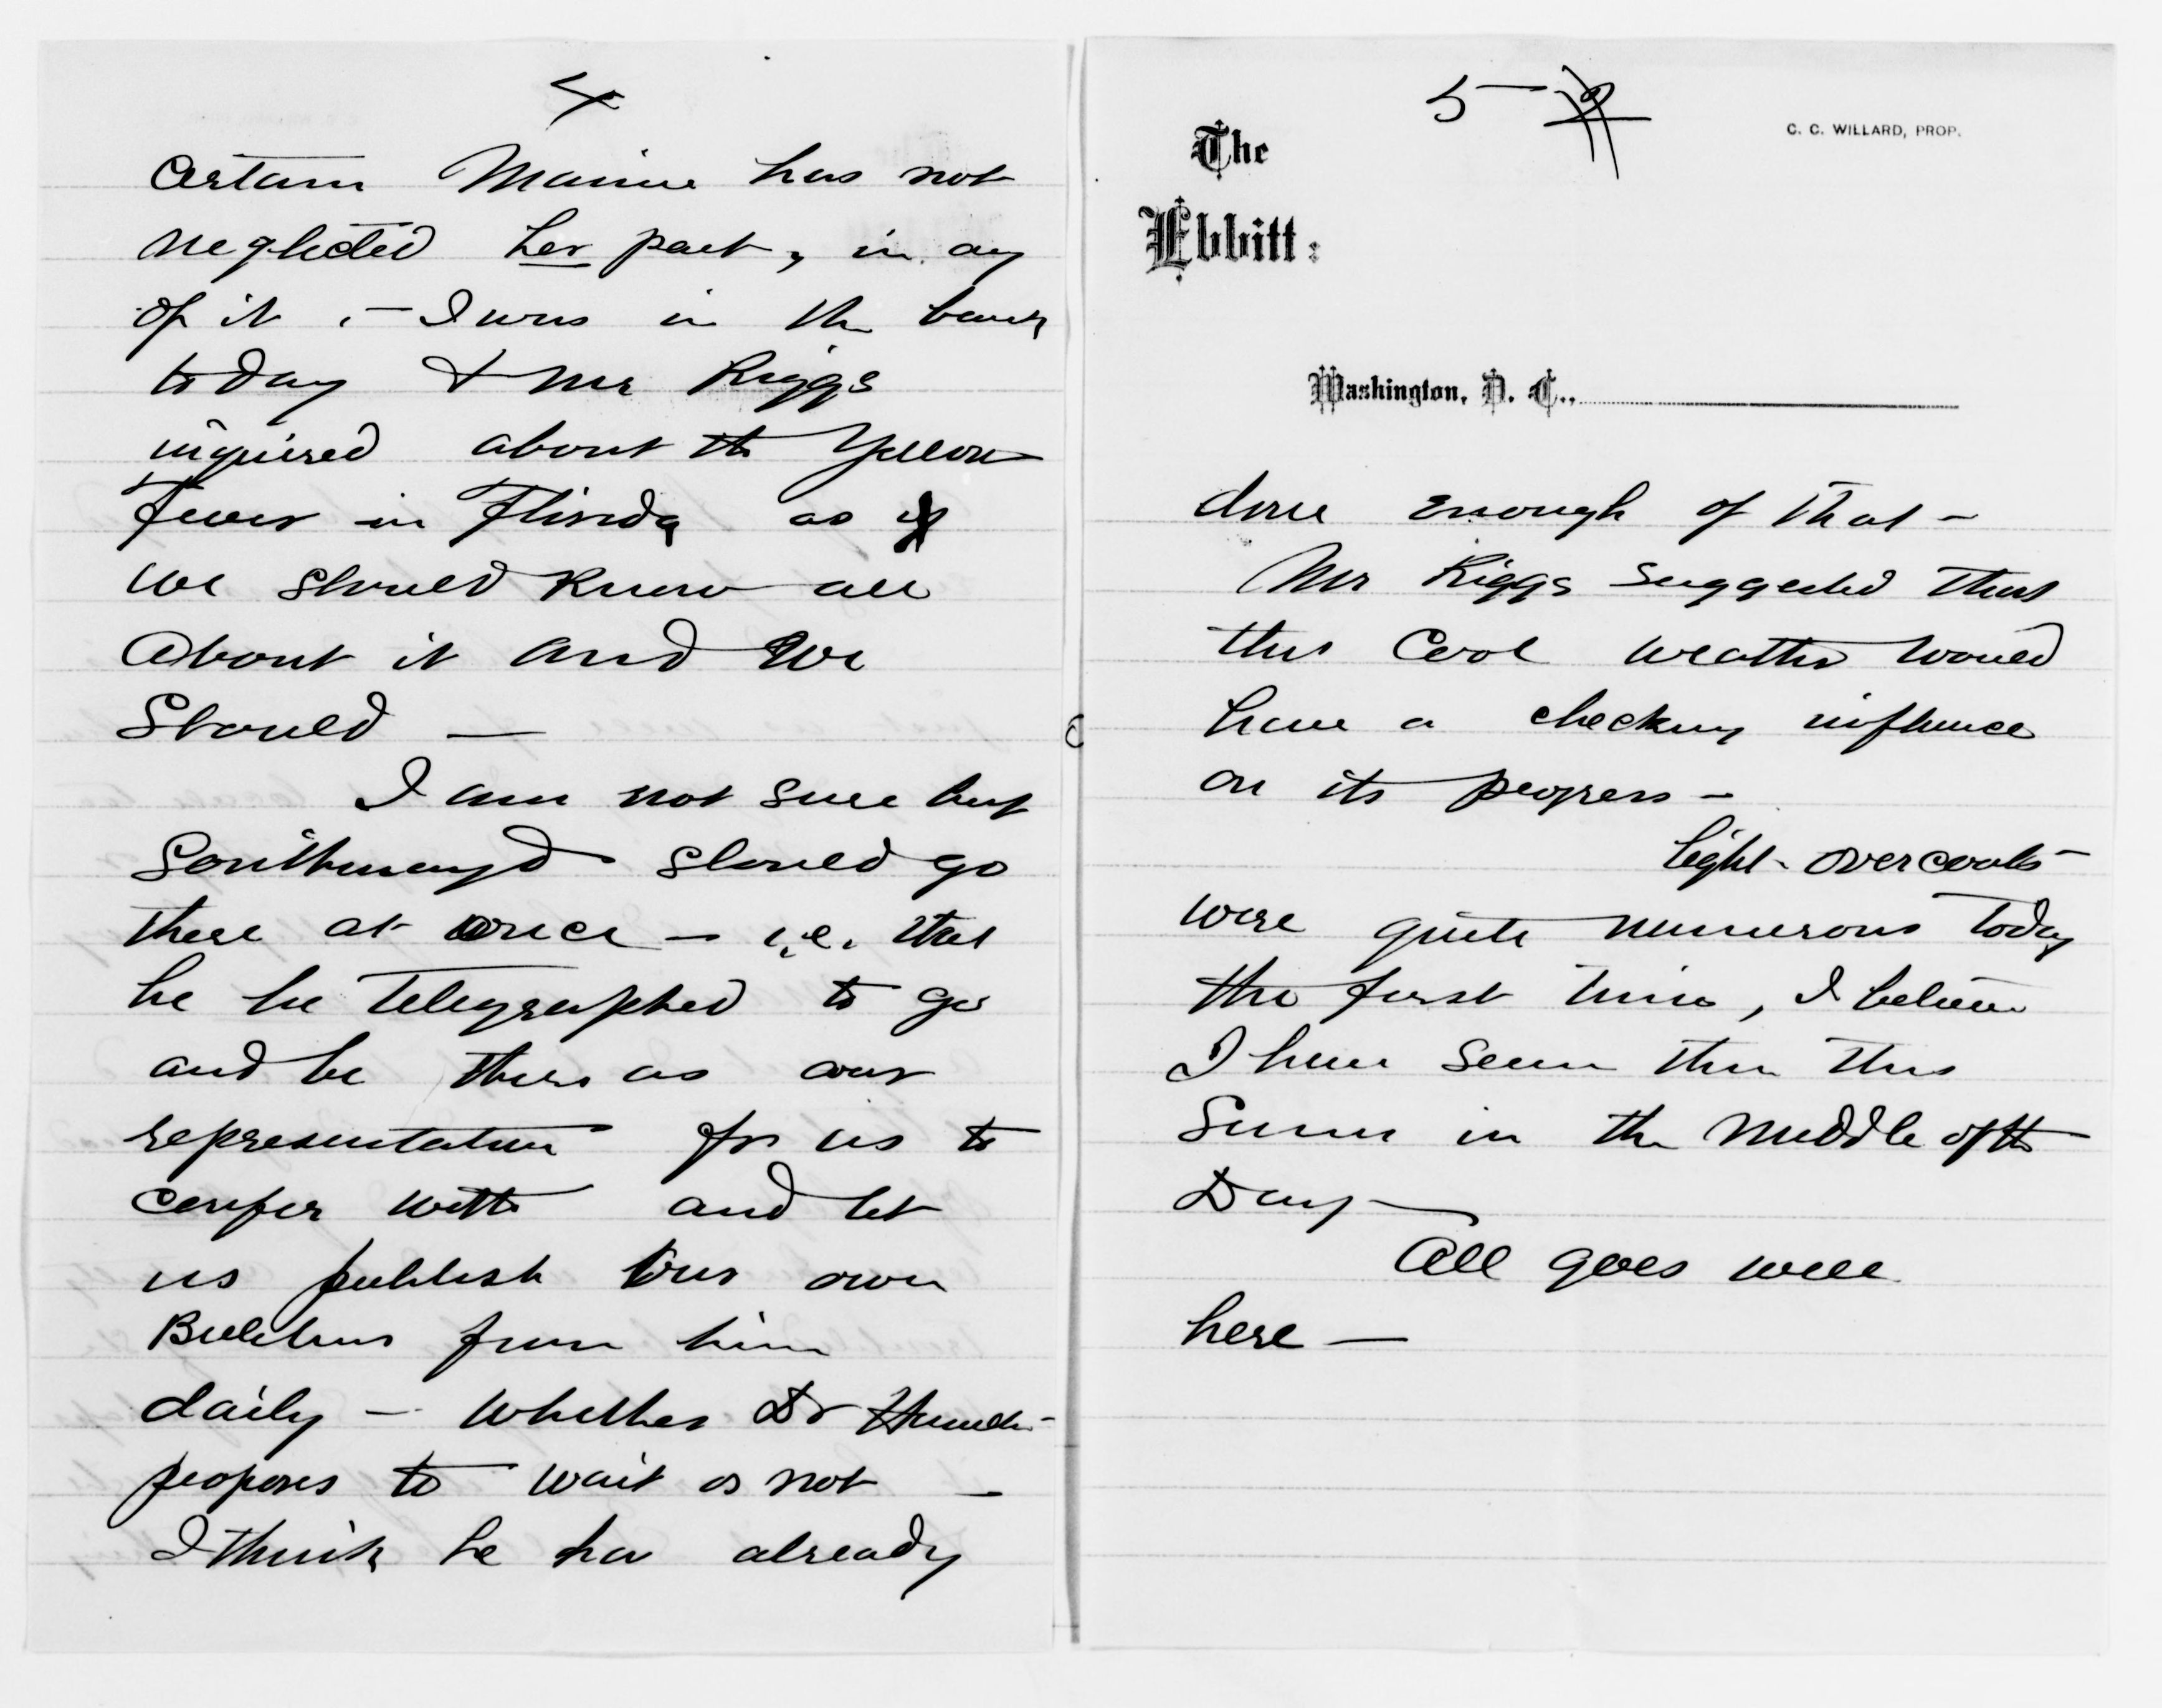 4
certain Mamie has not
neglected her part, in any
of it, – I was in the bank
today & Mr Riggs
inquired about the Yellow
fever in Florida as if
we should know all
about it and we
should —
I am not sure but
Southmayd should go
there at once – i.e. that
he be telegraphed to go
and be there as our
representation for us to
confer with and let
us publish our own
Bulletins from him
daily – whether Dr Hamilton
proposes to wait or not –
I think he has already
5
C. C. WILLARD, PROP.
The
Ebbitt:
Washington, D. C.,
done enough of that –
Mr Riggs suggested that
this cool weather would
have a checking influence
on its progress –
light overcoats –
were quite numerous today
the first time, I believe
I have seen them this
Summer in the middle of the
Day –
All goes well
here —